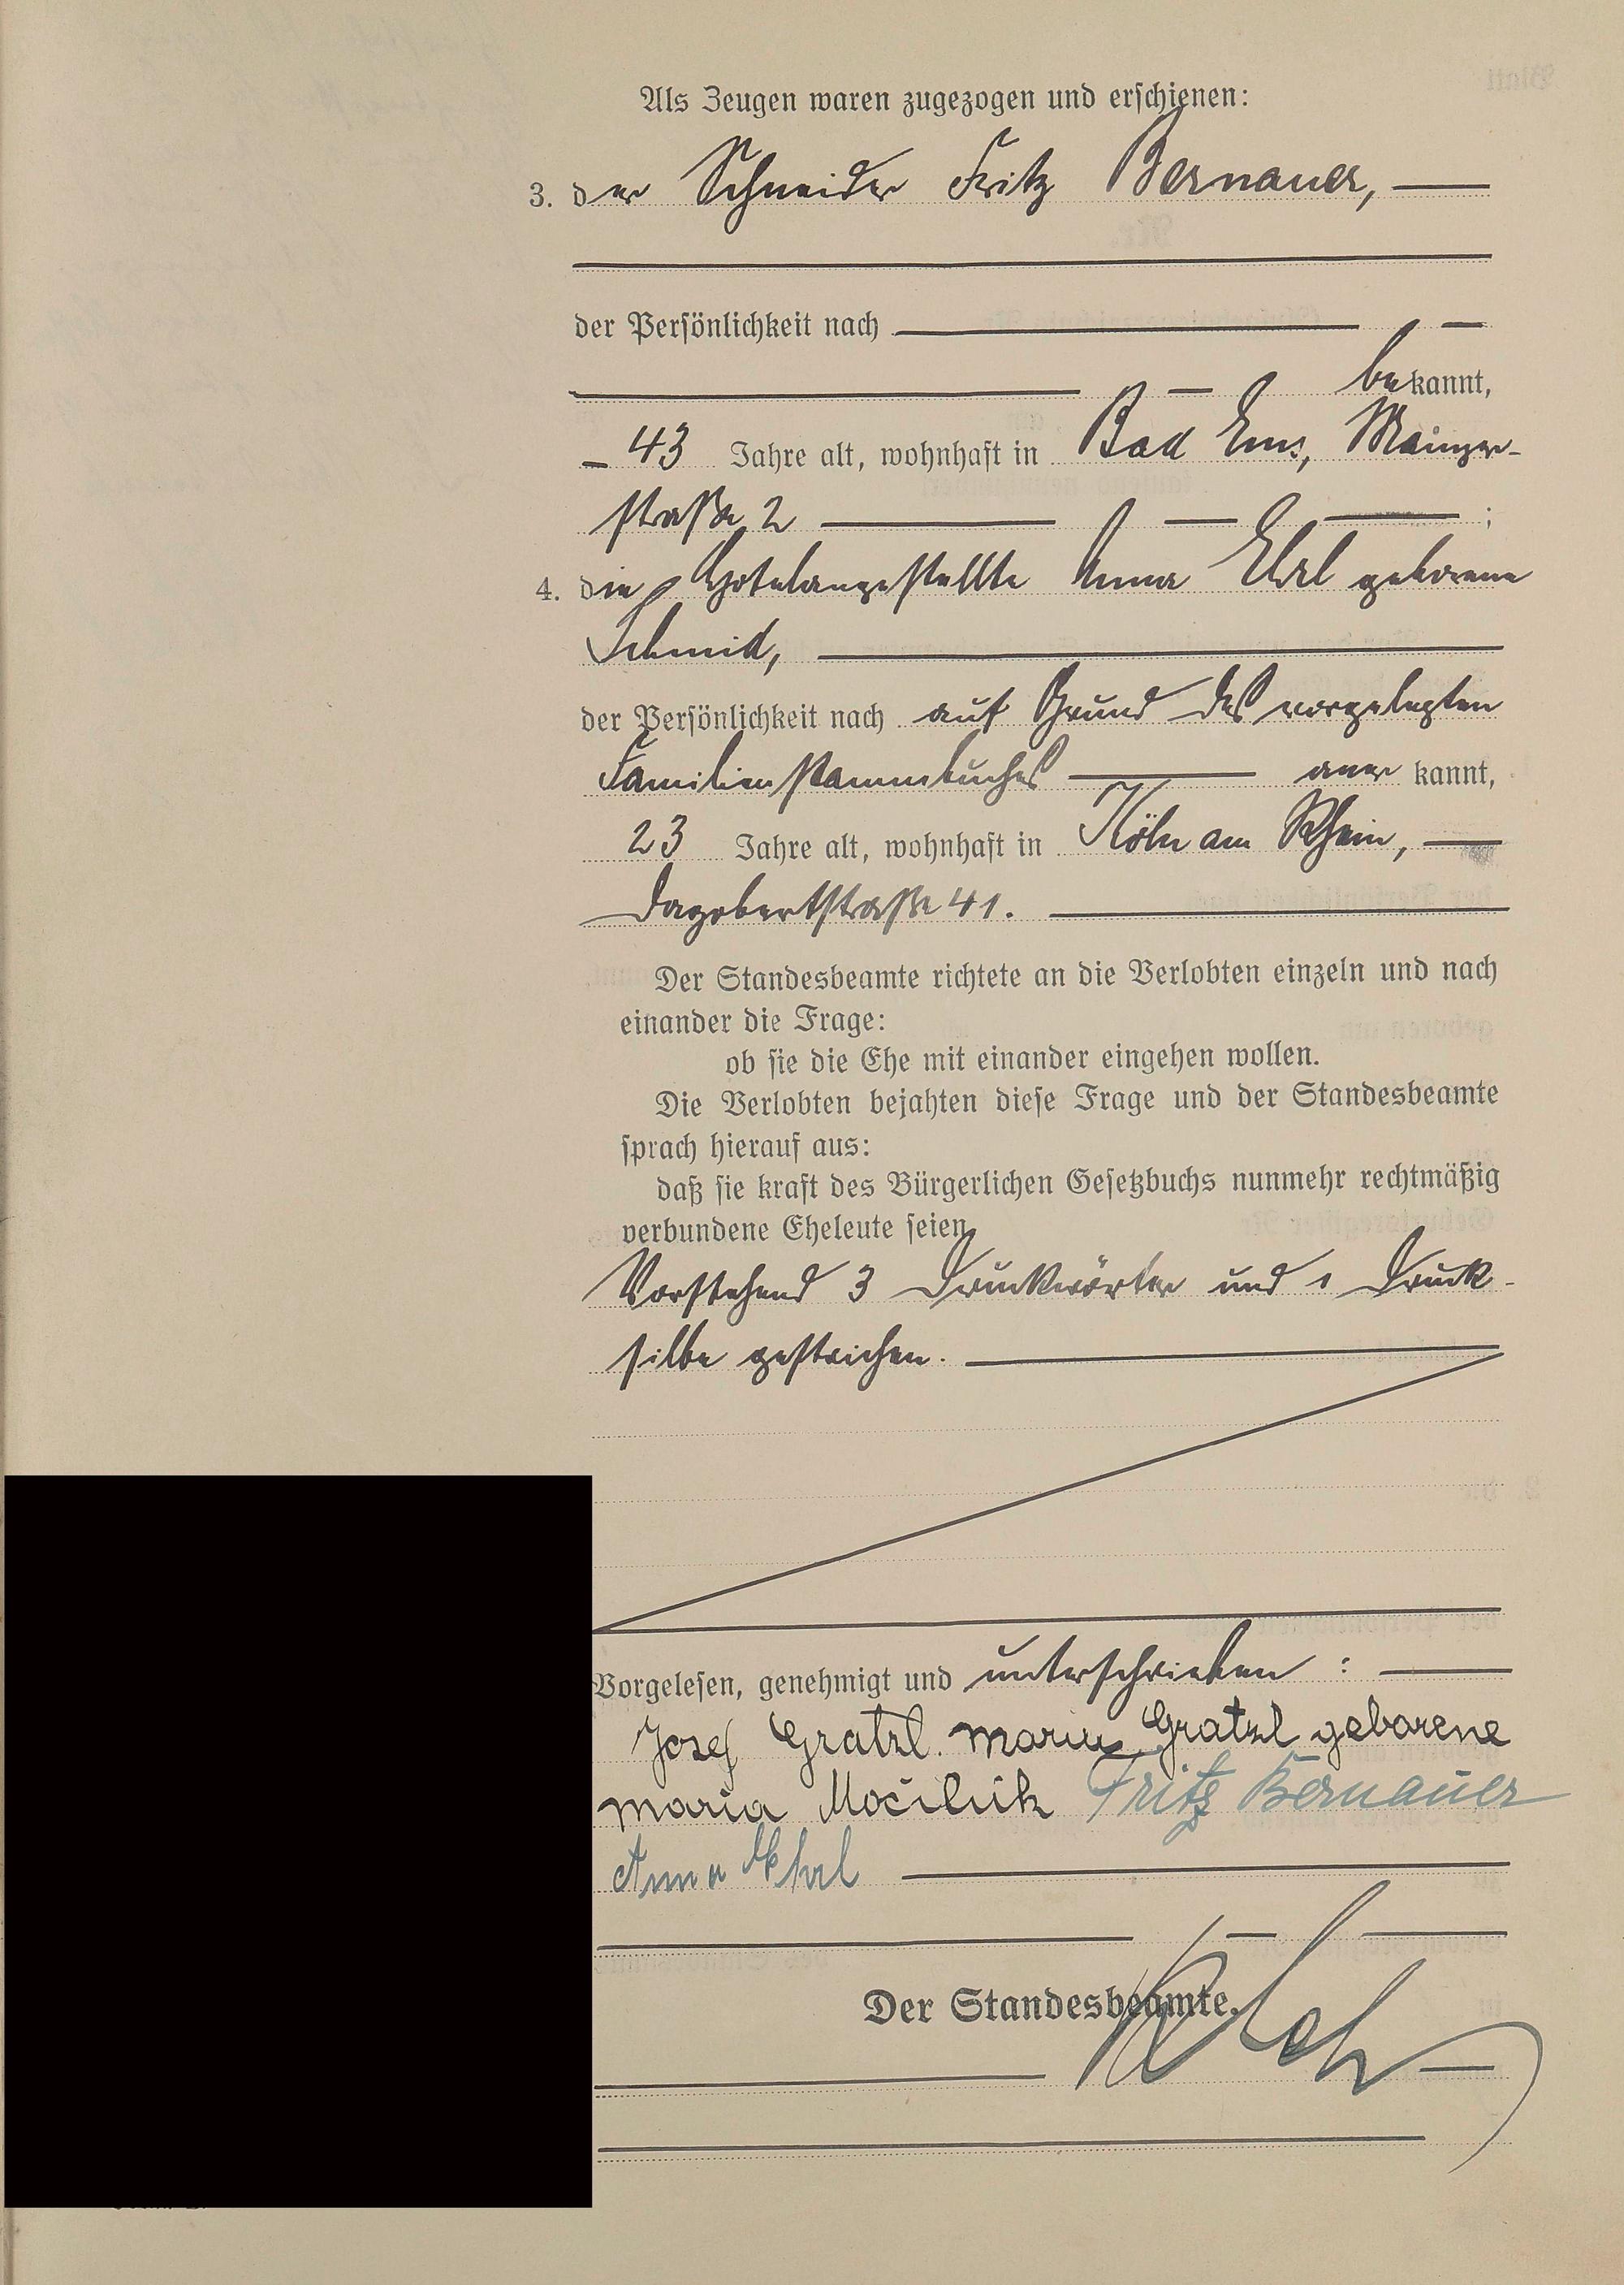 Als Zeugen waren zugezogen und erschienen:
3. der Schneider Fritz Bernauer,
der Persönlichkeit nach
bekannt,
43 Jahre alt, wohnhaft in Bad Ems, Mainzer-
straße 2 ;
4. die Hotelangestellte Anna Ehrl geborene
Schmid,
der Persönlichkeit nach auf Grund des vorgelegten
Familienstammbuches aner kannt,
23 Jahre alt, wohnhaft in Köln am Rhein,
Dagobertstraße 41.
Der Standesbeamte richtete an die Verlobten einzeln und nach
einander die Frage:
ob sie die Ehe mit einander eingehen wollen.
Die Verlobten bejahten diese Frage und der Standesbeamte
sprach hierauf aus:
daß sie kraft des Bürgerlichen Gesetzbuchs nunmehr rechtmäßig
verbundene Eheleute seien.
Vorstehend 3 Druckwörter und 1 Druck-
silbe gestrichen.
Vorgelesen, genehmigt und unterschrieben :
Josef Gratzl. Maria Gratzl geborene
Maria Močilnik Fritz Bernauer
Anna Ehrl
Der Standesbeamte.